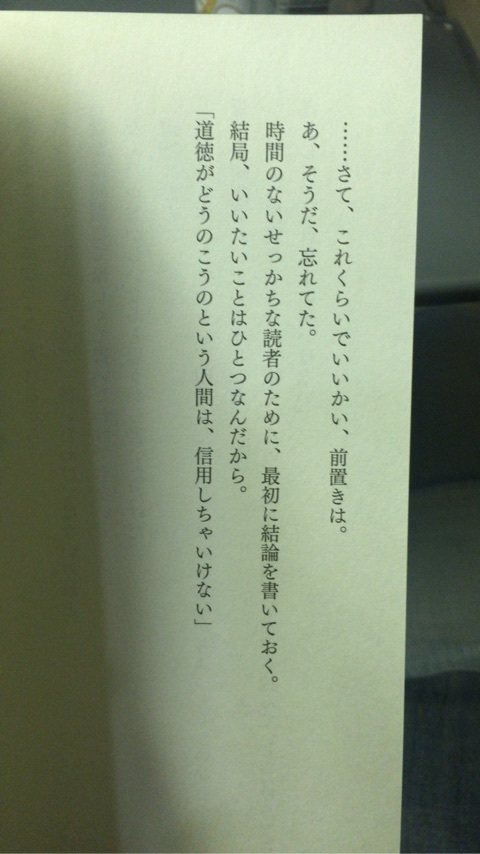 ……さて、これくらいでいいかい、前置きは。
あ、そうだ、忘れてた。
時間のないせっかちな読者のために、最初に結論を書いておく。
結局、いいたいことはひとつなんだから。
「道徳がどうのこうのという人間は、信用しちゃいけない」